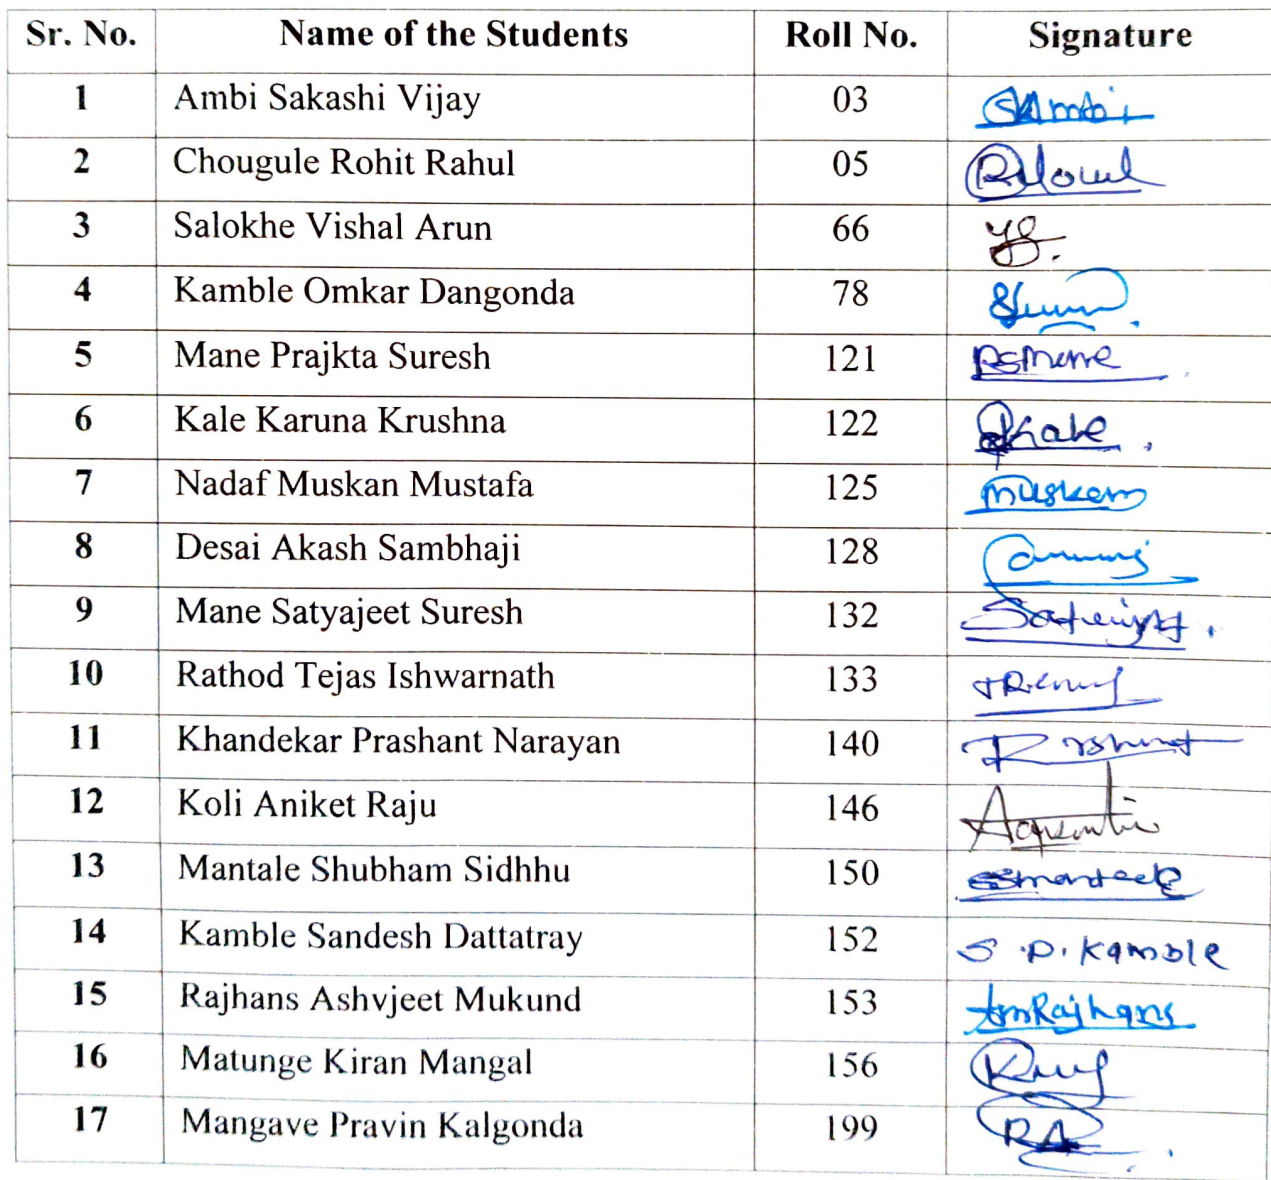 Sr. No. Name of the Students Roll No. Signature
1 Ambi Sakashi Vijay 03 SAmbi
2 Chougule Rohit Rahul 05
3 Salokhe Vishal Arun 66
4 Kamble Omkar Dangonda 78
5 Mane Prajkta Suresh 121 PSMane
6 Kale Karuna Krushna 122
7 Nadaf Muskan Mustafa 125 Muskan
8 Desai Akash Sambhaji 128
9 Mane Satyajeet Suresh 132
10 Rathod Tejas Ishwarnath 133
11 Khandekar Prashant Narayan 140
12 Koli Aniket Raju 146
13 Mantale Shubham Sidhhu 150
14 Kamble Sandesh Dattatray 152 S.D.Kamble
15 Rajhans Ashvjeet Mukund 153 AmRajhans
16 Matunge Kiran Mangal 156
17 Mangave Pravin Kalgonda 199